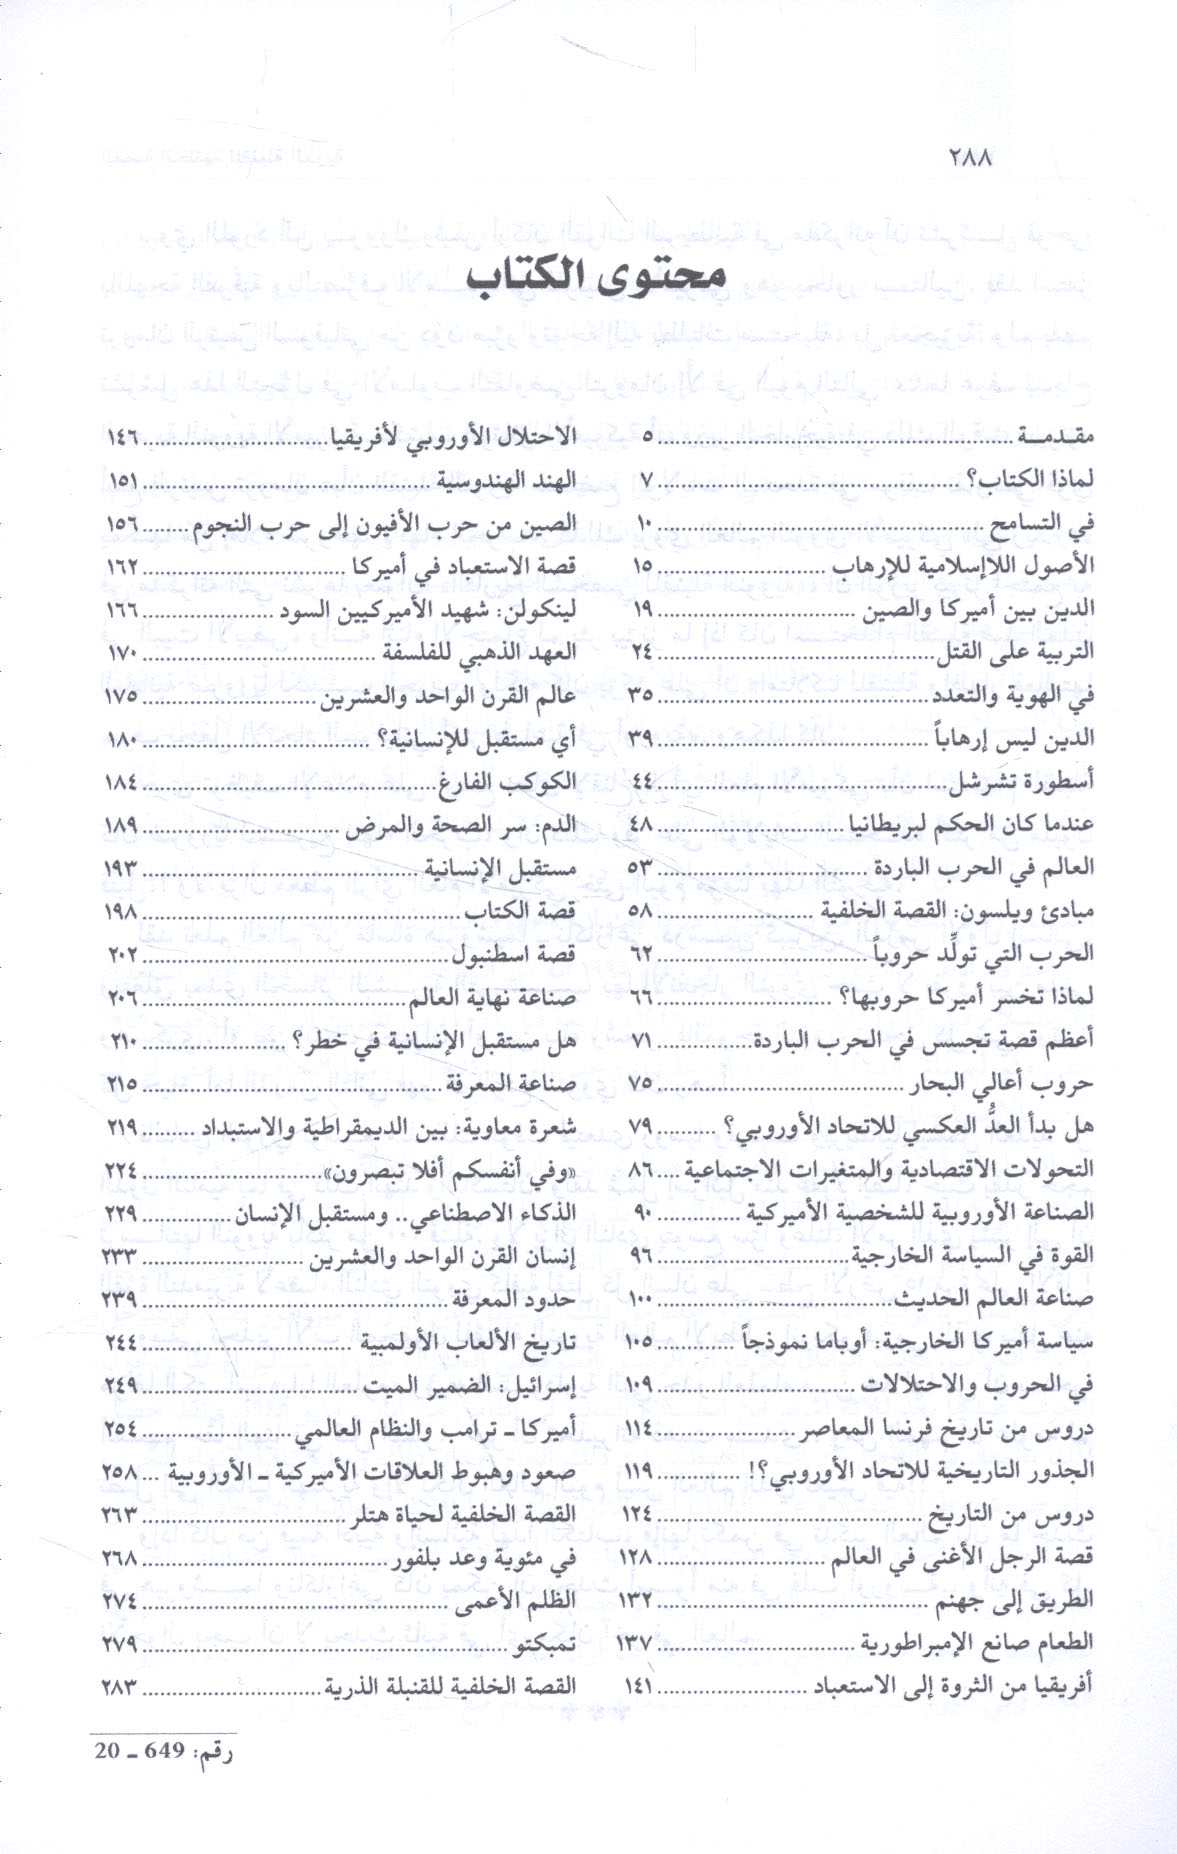 ٢٨٨
محتوى الكتاب
مقدمة ..... ٥
لماذا الكتاب؟ ..... ٧
في التسامح ..... ١٠
الأصول اللاإسلامية للإرهاب ..... ١٥
الدين بين أميركا والصين ..... ١٩
التربية على القتل ..... ٢٤
في الهوية والتعدد ..... ٣٥
الدين ليس إرهاباً ..... ٣٩
أسطورة تشرشل ..... ٤٤
عندما كان الحكم لبريطانيا ..... ٤٨
العالم في الحرب الباردة ..... ٥٣
مبادئ ويلسون: القصة الخلفية ..... ٥٨
الحرب التي تولِّد حروباً ..... ٦٢
لماذا تخسر أميركا حروبها؟ ..... ٦٦
أعظم قصة تجسس في الحرب الباردة ..... ٧١
حروب أعالي البحار ..... ٧٥
هل بدأ العدُّ العكسي للاتحاد الأوروبي؟ ..... ٧٩
التحولات الاقتصادية والمتغيرات الاجتماعية .... ٨٦
الصناعة الأوروبية للشخصية الأميركية ..... ٩٠
القوة في السياسة الخارجية ..... ٩٦
صناعة العالم الحديث ..... ١٠٠
سياسة أميركا الخارجية: أوباما نموذجاً ..... ١٠٥
في الحروب والاحتلالات ..... ١٠٩
دروس من تاريخ فرنسا المعاصر ..... ١١٤
الجذور التاريخية للاتحاد الأوروبي؟! ..... ١١٩
دروس من التاريخ ..... ١٢٤
قصة الرجل الأغنى في العالم ..... ١٢٨
الطريق إلى جهنم ..... ١٣٢
الطعام صانع الإمبراطورية ..... ١٣٧
أفريقيا من الثروة إلى الاستعباد ..... ١٤١
الاحتلال الأوروبي لأفريقيا ..... ١٤٦
الهند الهندوسية ..... ١٥١
الصين من حرب الأفيون إلى حرب النجوم ..... ١٥٦
قصة الاستعباد في أميركا ..... ١٦٢
لينكولن: شهيد الأميركيين السود ..... ١٦٦
العهد الذهبي للفلسفة ..... ١٧٠
عالم القرن الواحد والعشرين ..... ١٧٥
أي مستقبل للإنسانية؟ ..... ١٨٠
الكوكب الفارغ ..... ١٨٤
الدم: سر الصحة والمرض ..... ١٨٩
مستقبل الإنسانية ..... ١٩٣
قصة الكتاب ..... ١٩٨
قصة اسطنبول ..... ٢٠٢
صناعة نهاية العالم ..... ٢٠٦
هل مستقبل الإنسانية في خطر؟ ..... ٢١٠
صناعة المعرفة ..... ٢١٥
شعرة معاوية: بين الديمقراطية والاستبداد ..... ٢١٩
«وفي أنفسكم أفلا تبصرون» ..... ٢٢٤
الذكاء الاصطناعي.. ومستقبل الإنسان ..... ٢٢٩
إنسان القرن الواحد والعشرين ..... ٢٣٣
حدود المعرفة ..... ٢٣٩
تاريخ الألعاب الأولمبية ..... ٢٤٤
إسرائيل: الضمير الميت ..... ٢٤٩
أميركا ـ ترامب والنظام العالمي ..... ٢٥٤
صعود وهبوط العلاقات الأميركية ـ الأوروبية ... ٢٥٨
القصة الخلفية لحياة هتلر ..... ٢٦٣
في مئوية وعد بلفور ..... ٢٦٨
الظلم الأعمى ..... ٢٧٤
تمبكتو ..... ٢٧٩
القصة الخلفية للقنبلة الذرية ..... ٢٨٣
رقم: 649 ـ 20